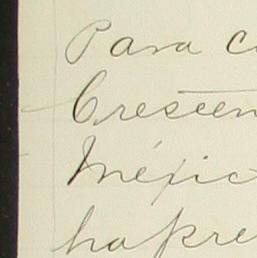 Para c
Crescen
Méxic
ha pre